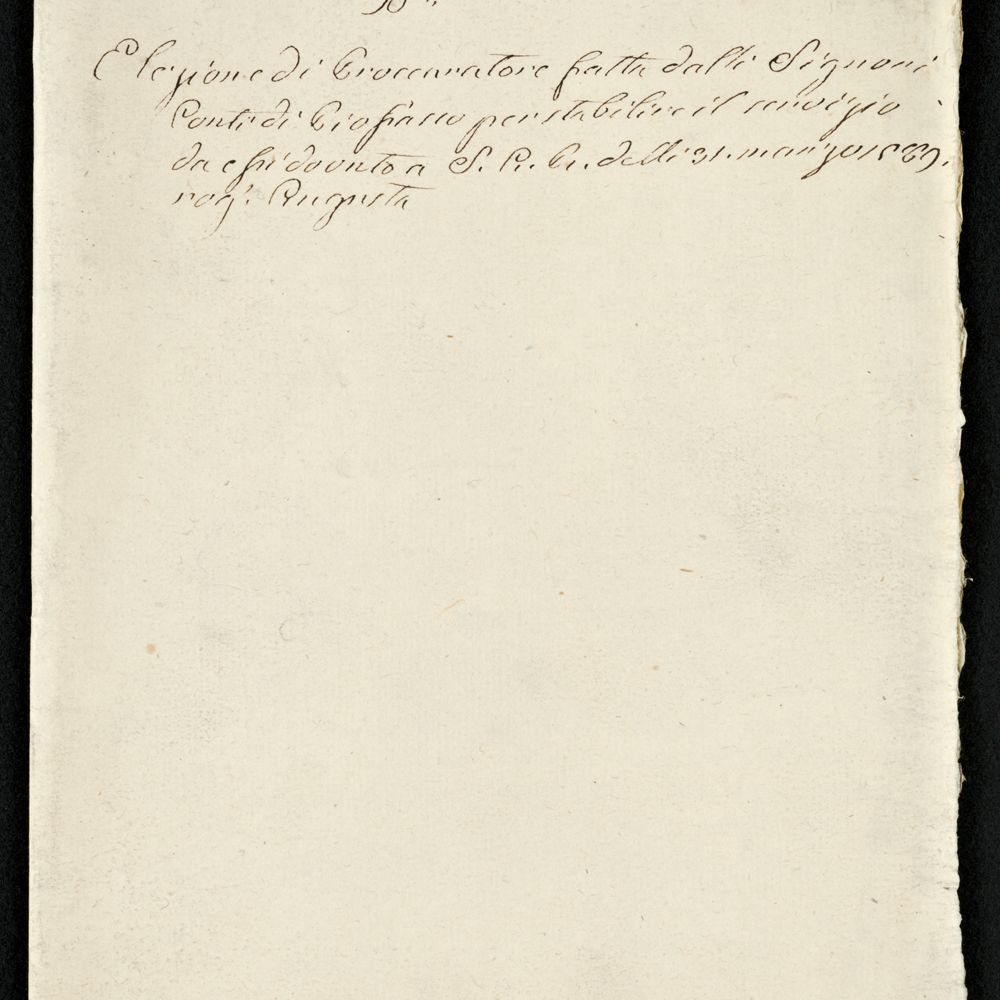 Elezione di Proccuratore fatta dalli Signori
Conti di Piosasco per stabilire il servizio
da essi dovuto a S. A. R. delli 31. marzo 1589.
rog. Augusta